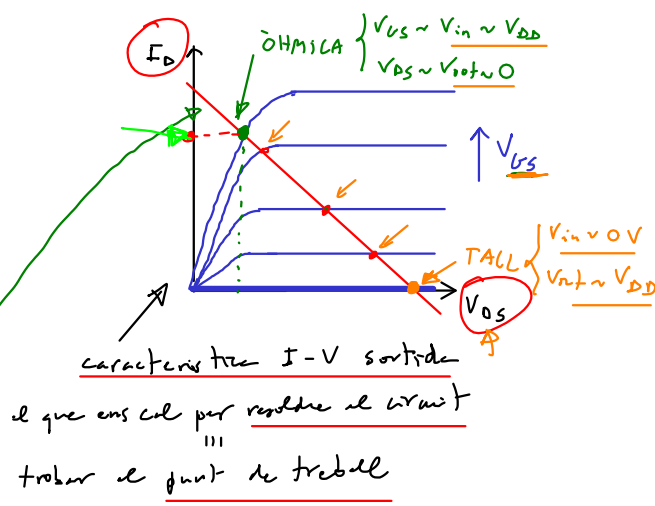 I_D
ÒHMICA { V_GS ~ V_in ~ V_DD
V_DS ~ V_out ~ 0
↑ V_GS
TALL { V_in ~ 0V
V_out ~ V_DD
V_DS
característica I-V sortida
el que ens cal per resoldre el circuit
III
trobar el punt de treball